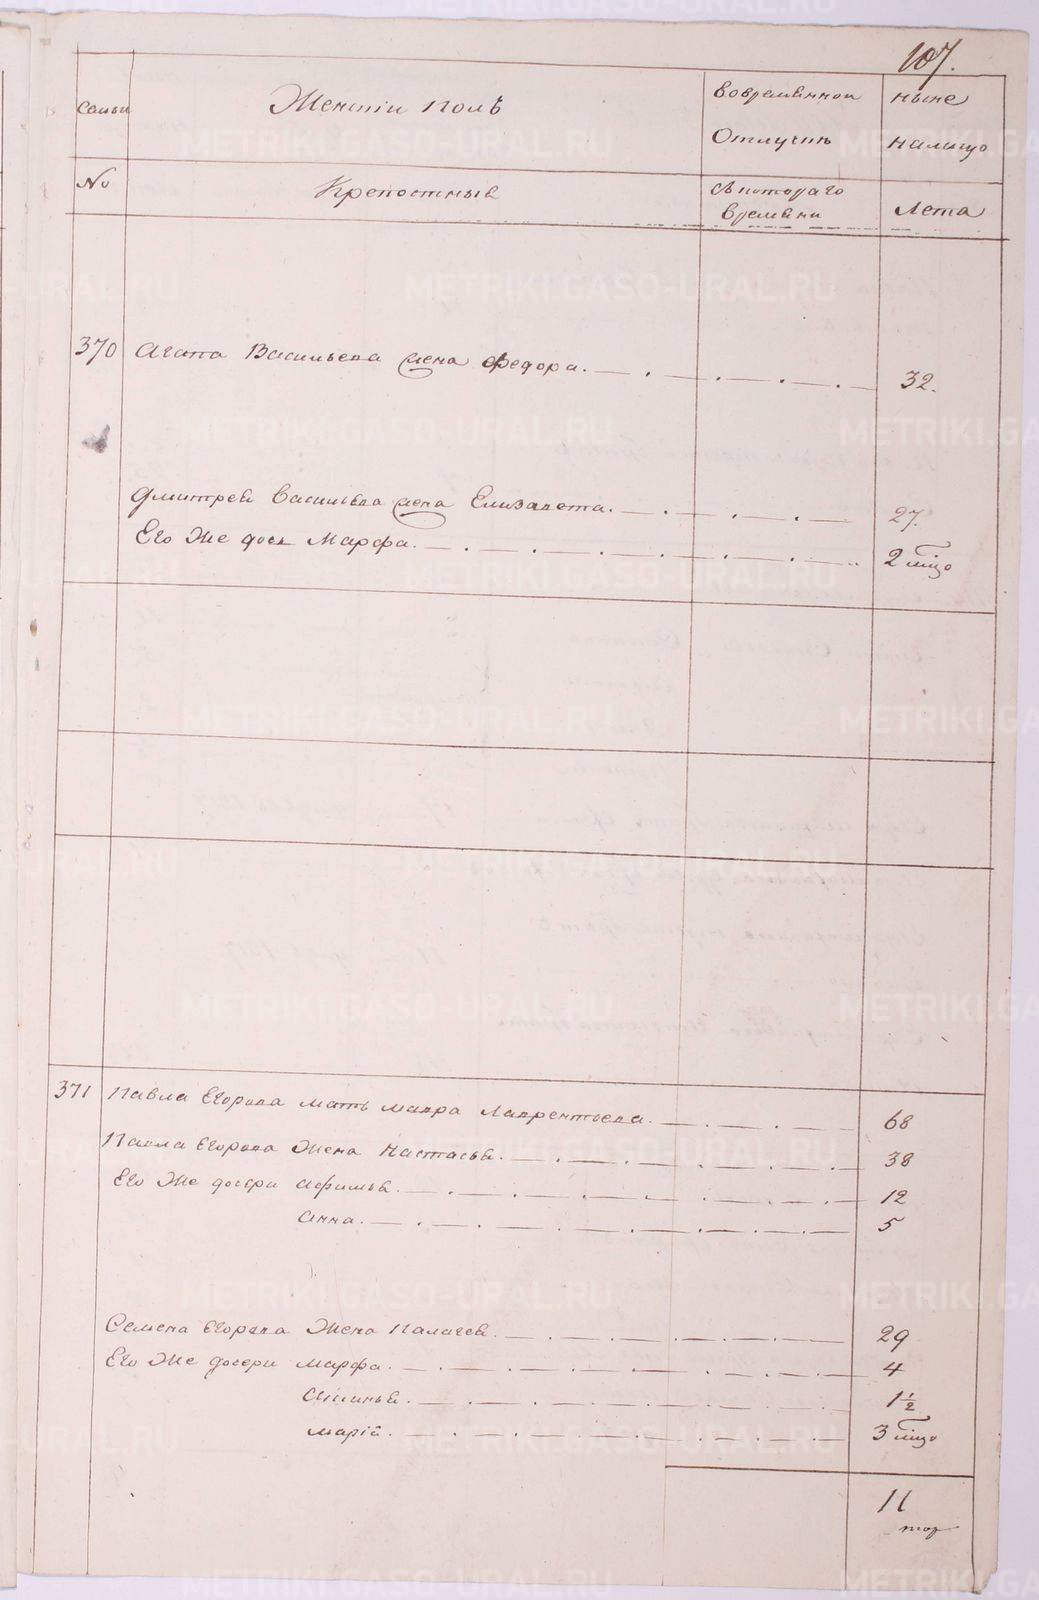 107.
семьи Женскiи полъ вовременнои ныне
Отлучкѣ налицо
No Крепостные съ котораго Лета
времени
370 Агапа Васильева жена Федора. 32.
Дмитрея Васильева жена Елизавета. 27.
Его Же дочь Марфа. 2 мѣсо
371 Павла Егорова мать мавра Лаврентьева. 68
Павла Егорова Жена Настасья. 38
Его Же дочери Афимья. 12
Анна. 5
Семена Егорова Жена Палагея. 29
Его Же дочери марфа. 4
1½
марiя. 3 мѣсо
11
METRIKI.GASO-URAL.RU